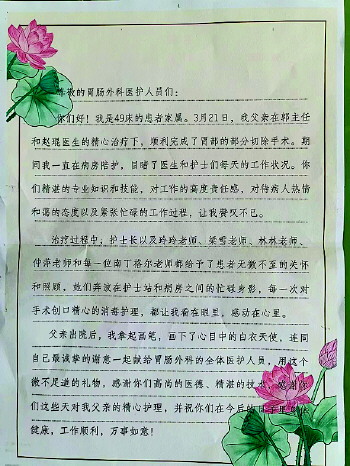 尊敬的胃肠外科医护人员们：
你们好！我是49床的患者家属。3月21日，我父亲在郭主任
和赵琨医生的精心治疗下，顺利完成了胃部的部分切除手术。期
间我一直在病房陪护，目睹了医生和护士们每天的工作状况。你
们精湛的专业知识和技能，对工作的高度责任感，对待病人热情
和蔼的态度以及紧张忙碌的工作过程，让我赞叹不已。
治疗过程中，护士长以及玲玲老师、梁雪老师、林林老师、
萍老师和每一位南丁格尔老师都给予了患者无微不至的关怀
和照顾。她们奔波在护士站和病房之间的忙碌身影，每一次对
手术创口精心的消毒护理，都让我看在眼里，感动在心里。
父亲出院后，我拿起画笔，画下了心目中的白衣天使，连同
自己最诚挚的谢意一起献给胃肠外科的全体医护人员，用这个
微不足道的礼物，感谢你们高尚的医德、精湛的技术，感谢你
们这些天对我父亲的精心护理，并祝你们在今后的日子里身体
健康，工作顺利，万事如意！